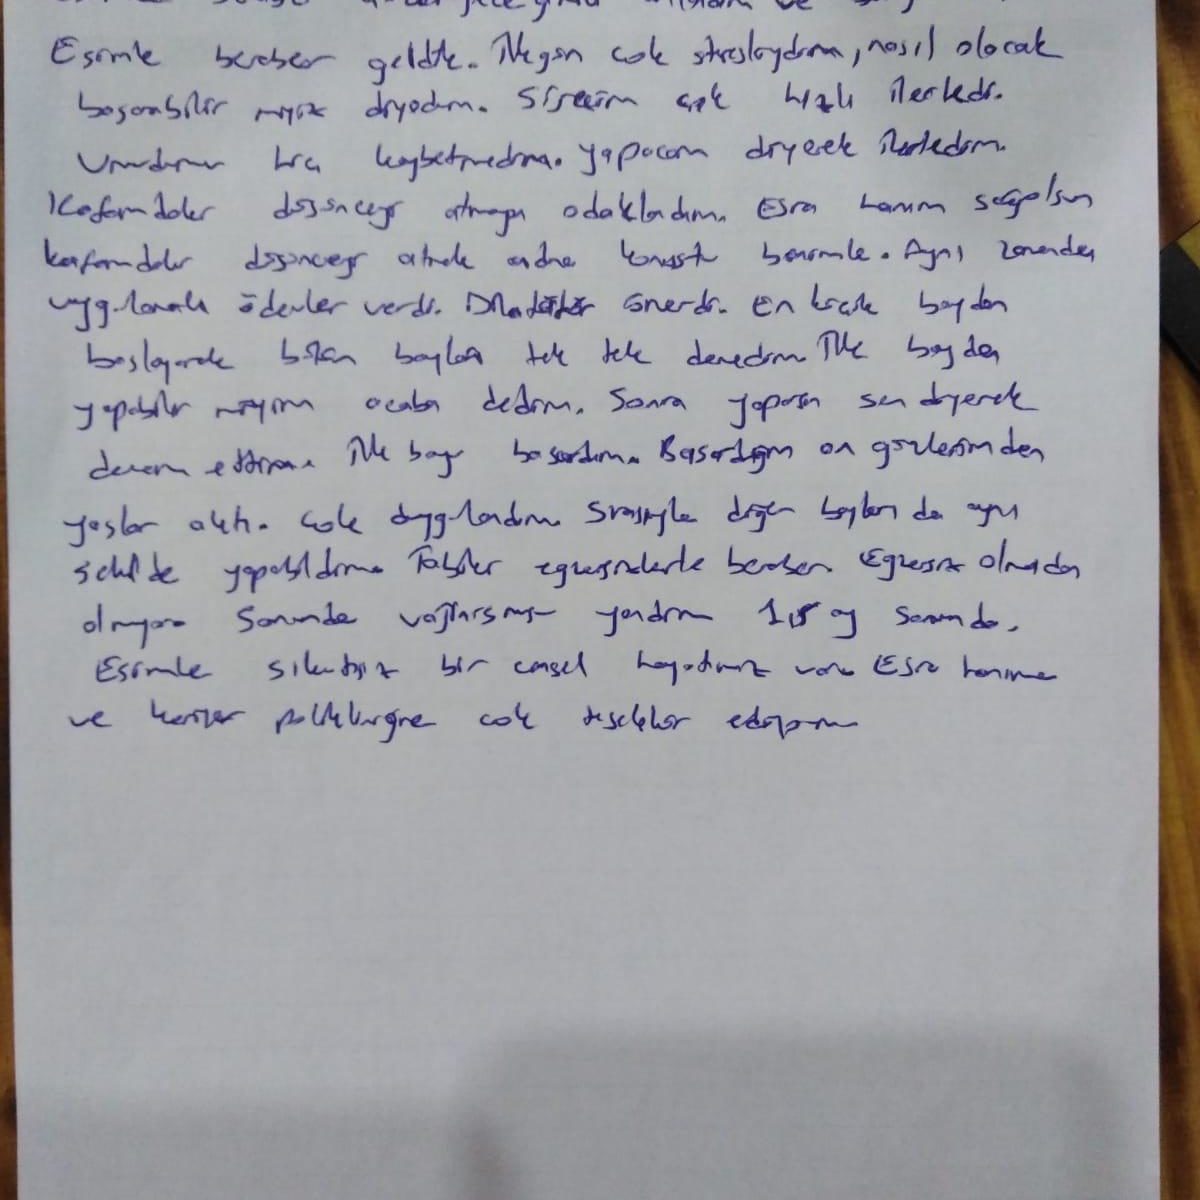 Eşimle beraber geldik. İlk gün çok stresliydim, nasıl olacak
başarabilir miyiz diyodum. Sürecim çok hızlı ilerledi.
Umudumu hiç kaybetmedim. Yapıcam diyerek ilerledim.
Kafamdaki düşünceyi atmaya odaklandım. Esra hanım sağolsun
kafamdaki düşünceyi atmak adına konuştu benimle. Aynı zamanda
uygulamalı ödevler verdi. Dilatör önerdi. En küçük boydan
başlayarak bütün boyları tek tek denedim. İlk boyda
yapabilir miyim acaba dedim. Sonra yaparsın sen diyerek
devam ettim. İlk boyu başardım. Başardığım an gözlerimden
yaşlar aktı. Çok duygulandım. Sırasıyla diğer boyları da aynı
şekilde yapabildim. Tabiki egzersizlerle beraber. Egzersiz olmadan
olmuyor. Sonunda vajinismusu yendim 1,5 ay sonunda.
Eşimle sıkıntısız bir cinsel hayatımız var. Esra hanıma
ve polikliniğine çok teşekkür ediyorum